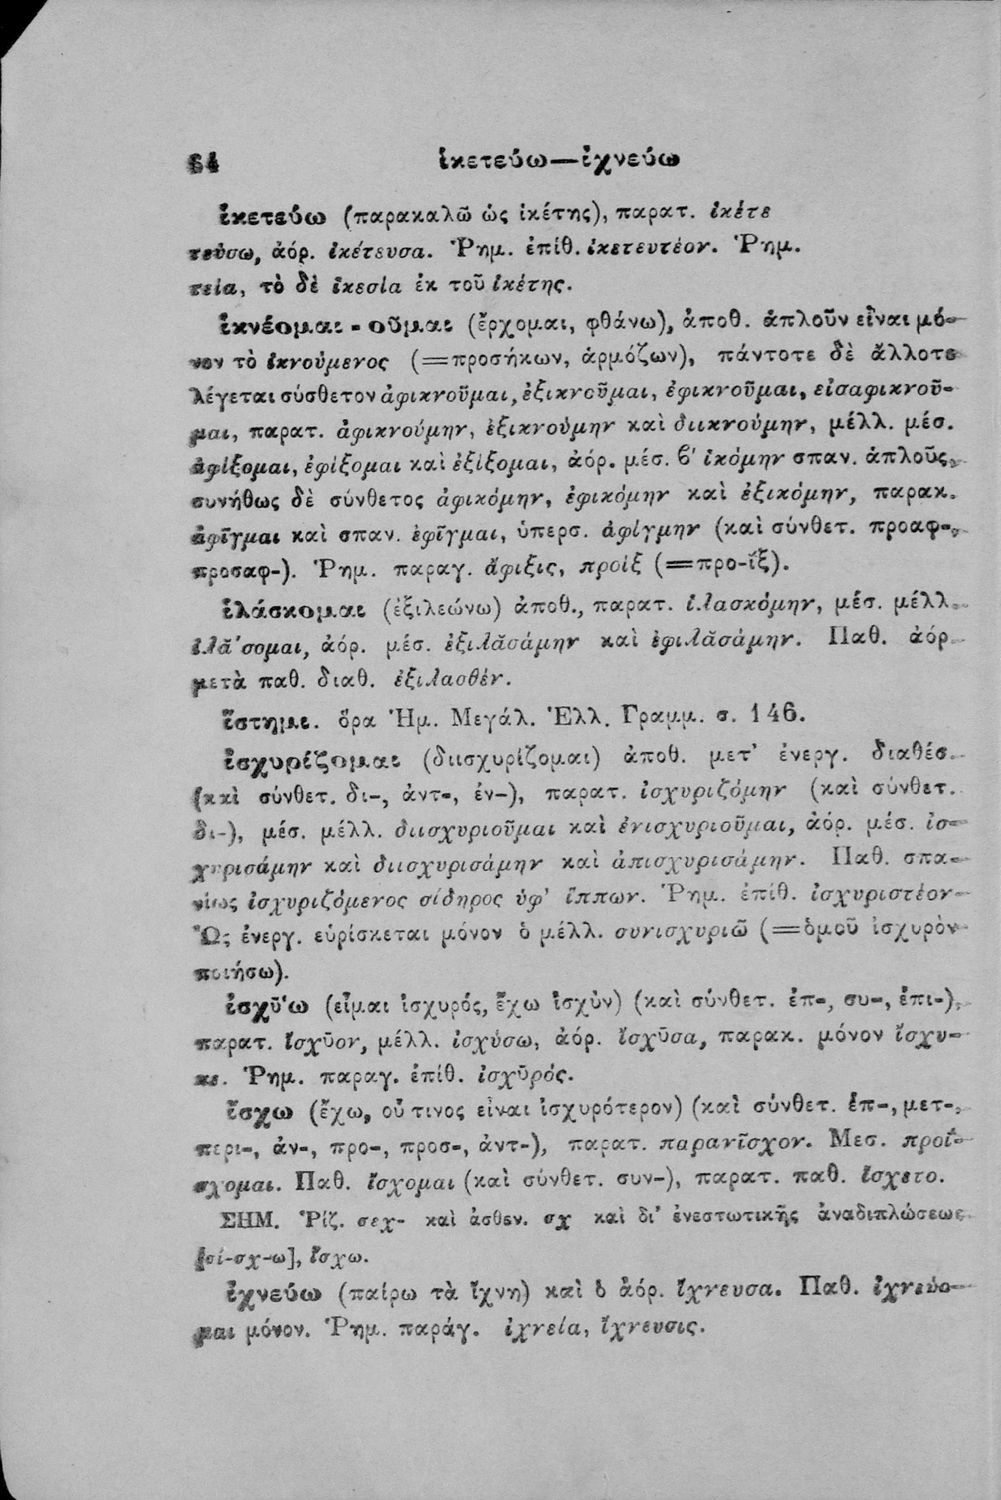 64 ἱκετεύω—ἰχνεύω
ἱκετεύω (παρακαλῶ ὡς ἱκέτης), παρατ. ἱκέτε
τεύσω, ἀόρ. ἱκέτευσα. Ῥημ. ἐπίθ. ἱκετευτέον. Ῥημ.
τεία, τὸ δὲ ἱκεσία ἐκ τοῦ ἱκέτης.
ἱκνέομαι - οῦμαι (ἔρχομαι, φθάνω), ἀποθ. ἁπλοῦν εἶναι μό-
νον τὸ ἱκνούμενος (=προσήκων, ἁρμόζων), πάντοτε δὲ ἄλλοτε
λέγεται σύσθετον ἀφικνοῦμαι, ἐξικνοῦμαι, ἐφικνοῦμαι, εἰσαφικνοῦ-
μαι, παρατ. ἀφικνούμην, ἐξικνούμην καὶ διικνούμην, μέλλ. μέσ.
ἀφίξομαι, ἐφίξομαι καὶ ἐξίξομαι, ἀόρ. μέσ. β' ἱκόμην σπαν. ἁπλοῦς,
συνήθως δὲ σύνθετος ἀφικόμην, ἐφικόμην καὶ ἐξικόμην, παρακ.
ἀφῖγμαι καὶ σπαν. ἐφῖγμαι, ὑπερσ. ἀφίγμην (καὶ σύνθετ. προαφ-,
προσαφ-). Ῥημ. παραγ. ἄφιξις, προίξ (=προ-ΐξ).
ἱλάσκομαι (ἐξιλεώνω) ἀποθ., παρατ. ἱλασκόμην, μέσ. μέλλ.
ἱλᾰ́σομαι, ἀόρ. μέσ. ἐξιλᾰσάμην καὶ ἐφιλᾰσάμην. Παθ. ἀόρ.
μετὰ παθ. διαθ. ἐξιλασθέν.
ἵστημι. ὅρα Ἡμ. Μεγάλ. Ἑλλ. Γραμμ. σ. 146.
ἰσχυρίζομαι (διισχυρίζομαι) ἀποθ. μετ' ἐνεργ. διαθέσ.
(καὶ σύνθετ. δι-, ἀντ-, ἐν-), παρατ. ἰσχυριζόμην (καὶ σύνθετ.
δι-), μέσ. μέλλ. διισχυριοῦμαι καὶ ἐνισχυριοῦμαι, ἀόρ. μέσ. ἰσ-
χυρισάμην καὶ διισχυρισάμην καὶ ἀπισχυρισάμην. Παθ. σπα-
νίως ἰσχυριζόμενος σίδηρος ὑφ' ἵππων. Ῥημ. ἐπίθ. ἰσχυριστέον
Ὡς ἐνεργ. εὑρίσκεται μόνον ὁ μέλλ. συνισχυριῶ (=ὁμοῦ ἰσχυρὸν
ποιήσω).
ἰσχῡ́ω (εἶμαι ἰσχυρός, ἔχω ἰσχὺν) (καὶ σύνθετ. ἐπ-, συ-, ἐπι-),
παρατ. ἴσχῡον, μέλλ. ἰσχύσω, ἀόρ. ἴσχῡσα, παρακ. μόνον ἴσχυ-
κε. Ῥημ. παραγ. ἐπίθ. ἰσχῡρός.
ἴσχω (ἔχω, οὗ τινος εἶναι ἰσχυρότερον) (καὶ σύνθετ. ἐπ-, μετ-,
περι-, ἀν-, προ-, προσ-, ἀντ-), παρατ. παρανῖσχον. Μεσ. προΐ-
σχομαι. Παθ. ἴσχομαι (καὶ σύνθετ. συν-), παρατ. παθ. ἴσχετο.
ΣΗΜ. Ῥίζ. σεχ- καὶ ἀσθεν. σχ καὶ δι' ἐνεστωτικῆς ἀναδιπλώσεως
[σί-σχ-ω], ἴσχω.
ἰχνεύω (παίρω τὰ ἴχνη) καὶ ὁ ἀόρ. ἴχνευσα. Παθ. ἰχνεύο-
μαι μόνον. Ῥημ. παράγ. ἰχνεία, ἴχνευσις.